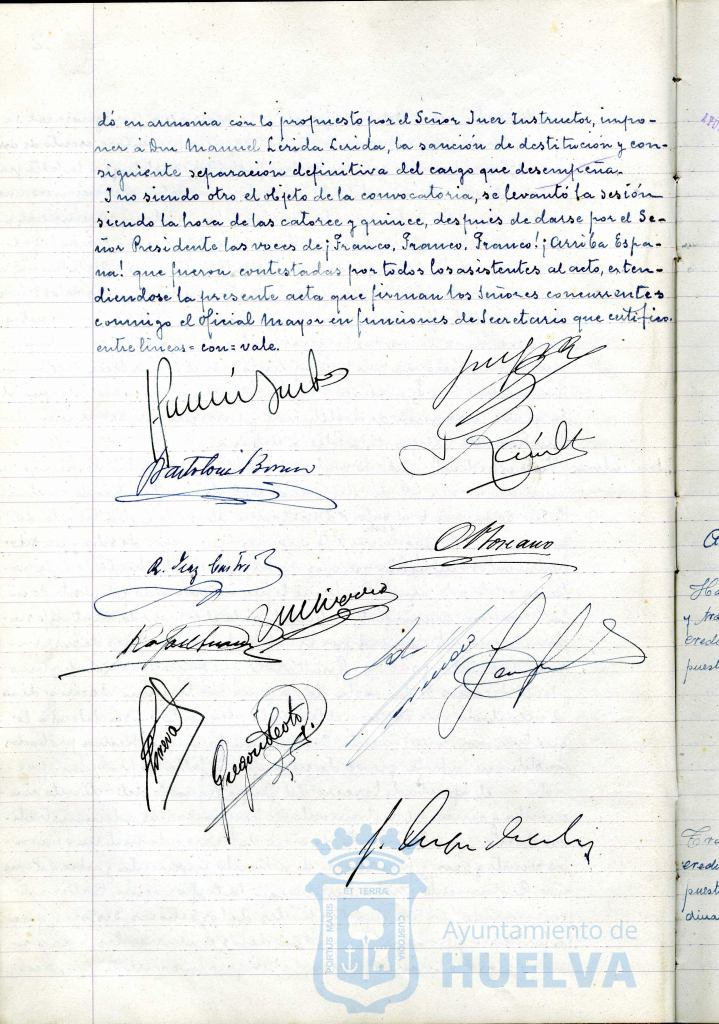 dó en armonia con lo propuesto por el Señor Juez Instructor, impo-
ner á Don Manuel Lérida Lérida, la sanción de destitución y con-
siguiente separación definitiva del cargo que desempeña.
I no siendo otro el objeto de la convocatoria, se levantó la sesión
siendo la hora de las catorce y quince, después de darse por el Se-
ñor Presidente las voces de ¡Franco, Franco, Franco! ¡Arriba Espa-
ña! que fueron contestadas por todos los asistentes al acto, exten-
diendose la presente acta que firman los Señores concurrentes
conmigo el Oficial Mayor en funciones de Secretario que certifico.
entre lineas = con = vale.
Bartolomé
Gregorio
PORTUS MARIS ET TERRÆ CUSTODIA
Ayuntamiento de
HUELVA